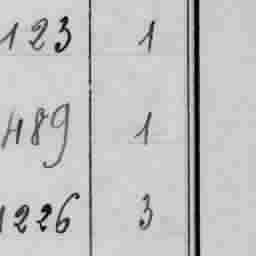 123 1
489 1
1226 3